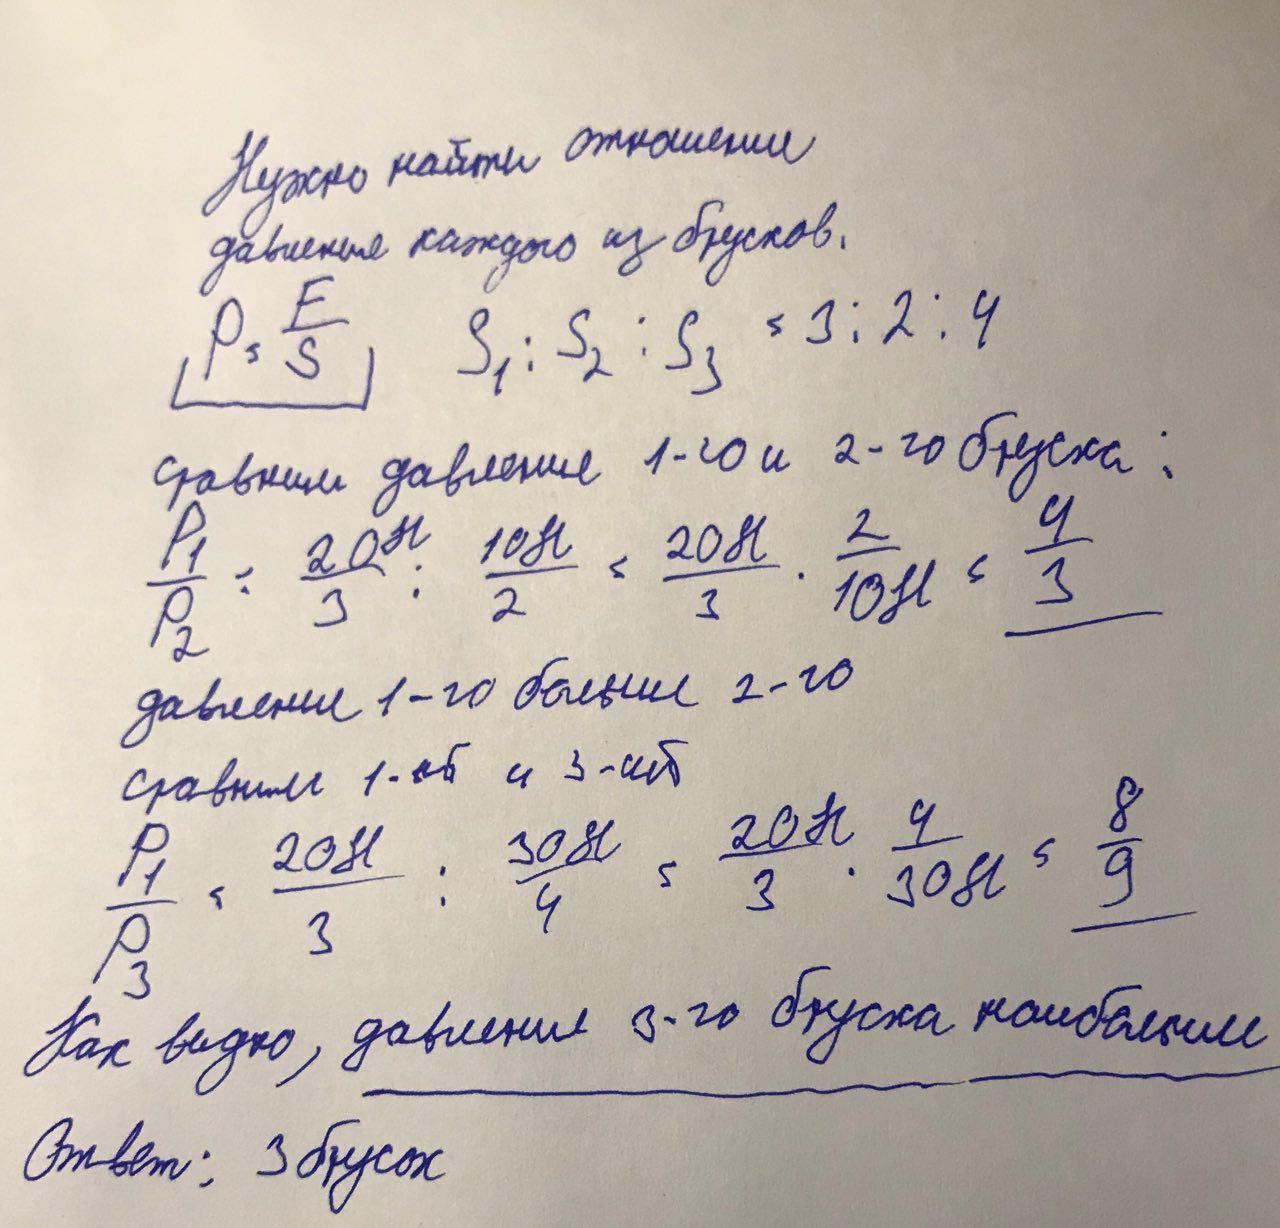 Нужно найти отношение
давления каждого из брусков.
P = F/S   S₁ : S₂ : S₃ = 3 : 2 : 4
сравним давление 1-го и 2-го бруска :
P₁/P₂ = 20Н/3 : 10Н/2 = 20Н/3 · 2/10Н = 4/3
давление 1-го больше 2-го
сравним 1-ый и 3-ий
P₁/P₃ = 20Н/3 : 30Н/4 = 20Н/3 · 4/30Н = 8/9
Как видно, давление 3-го бруска наибольшее
Ответ: 3 брусок